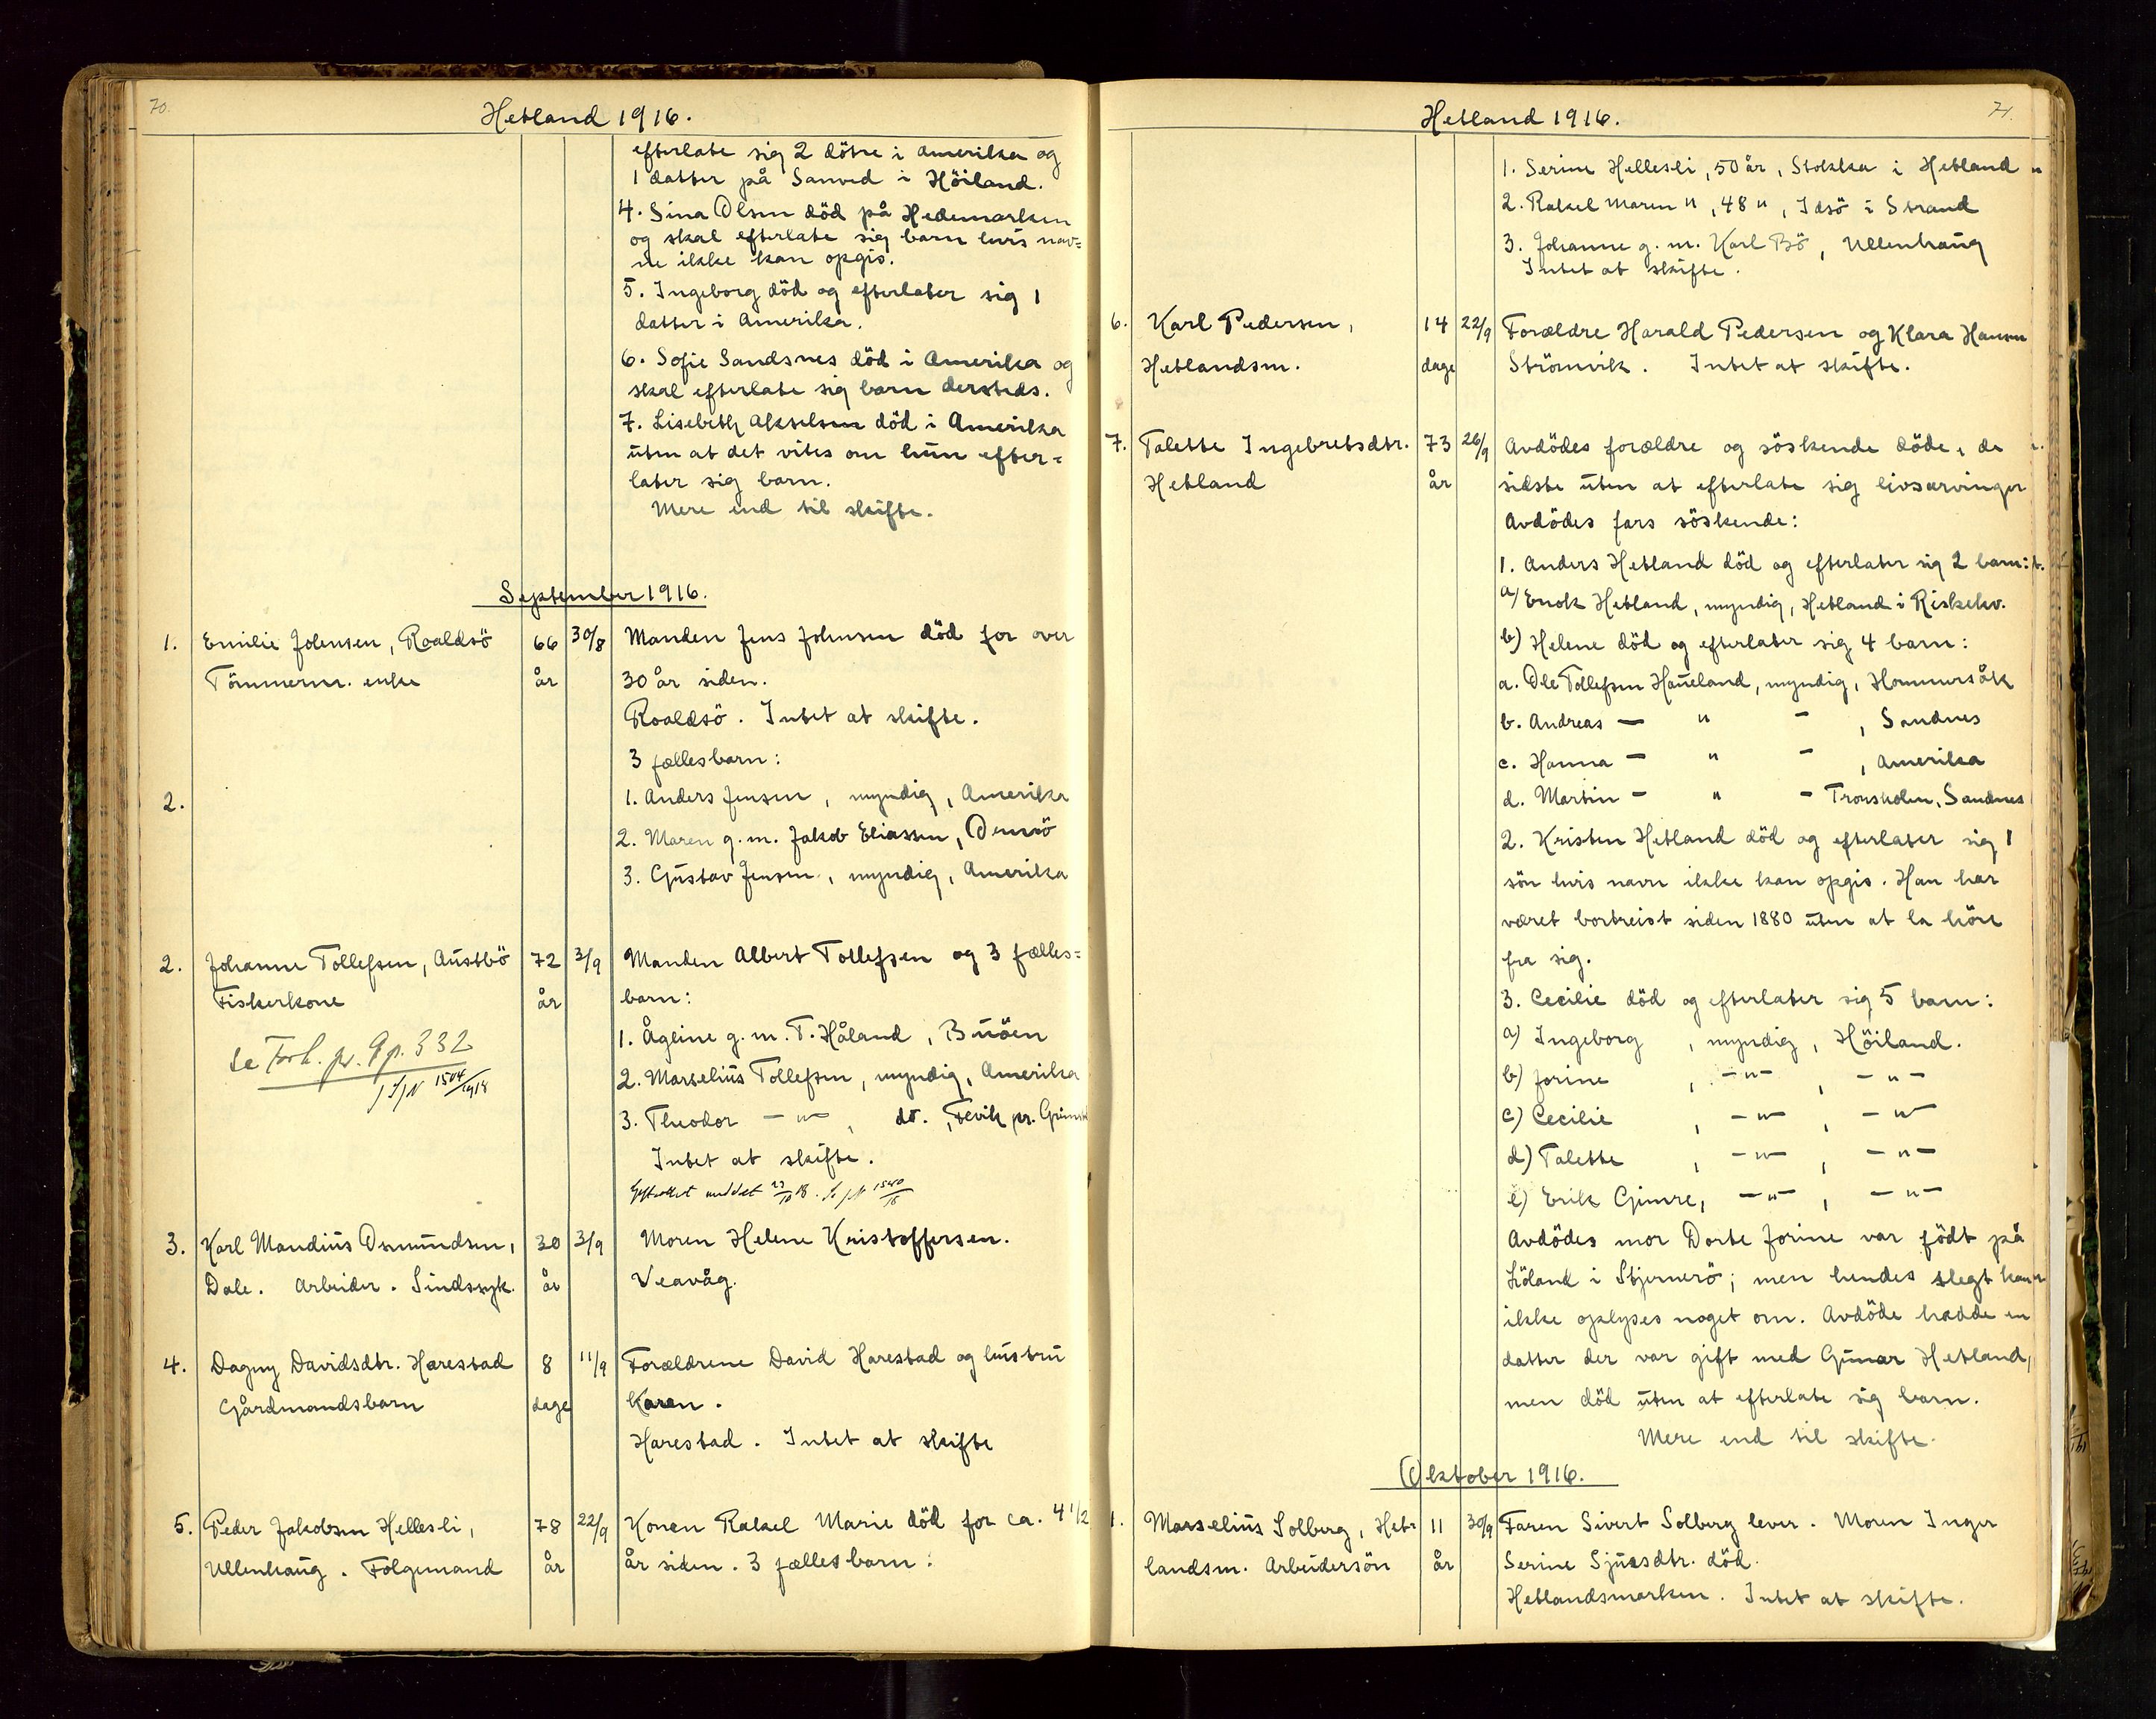 70.
Hetland 1916.
efterlate sig 2 dötre i Amerika og
1 datter på Sanved i Höiland.
4. Sina Olsen död på Hedemarken
og skal efterlate sig barn hvis nav=
ne ikke kan opgis.
5. Ingeborg död og efterlater sig 1
datter i Amerika.
6. Sofie Sandsnes död i Amerika og
skal efterlate sig barn dersteds.
7. Lisebeth Akselsen död i Amerika
uten at det vites om hun efter=
later sig barn.
Mere end til skifte.
September 1916.
1. Emilie Johnsen, Roaldsö 66 30/8 Manden Jens Johnsen död for over
Tömmerm. enke år 30 år siden.
Roaldsö. Intet at skifte.
3 fællesbarn:
2. 1. Anders Jensen, myndig, Amerika
2. Maren g.m. Jakob Eliassen, Ormö
3. Gustav Jensen, myndig, Amerika
2. Johanne Tollefsen, Austbö 72 3/9 Manden Albert Tollefsen og 3 fælles=
Fiskerkone år barn:
1. Ågeine g.m. T. Håland, Buöen
se Forh. pr. 9 p. 332
2. Marselius Tollefsen, myndig, Amerika
JN 1504/1918
3. Theodor —"— , do. , Fevik pr. Grimst
Intet at skifte.
meddelt 23/10 18. Se JN 1540/18
3. Karl Mandius Osmundsen, 30 3/9 Moren Helene Kristoffersen.
Dale. Arbeider. Sindssyk. år Veavåg.
4. Dagny Davidsdtr. Harestad 8 11/9 Forældrene David Harestad og hustru
Gårdmandsbarn dage Karen.
Harestad. Intet at skifte
5. Peder Jakobsen Hellesli, 78 22/9 Konen Rakel Marie död for ca. 4 1/2
Ullenhaug. Folgemand år år siden. 3 fællesbarn:
71.
Hetland 1916.
1. Serine Hellesli, 50 år, Stokka i Hetland
2. Rakel Maren ", 48 ", Idsö i Strand
3. Johanne g.m. Karl Bö, Ullenhaug
Intet at skifte.
6. Karl Pedersen, 14 22/9 Forældre Harald Pedersen og Klara Hansen
Hetlandsm. dage Strömvik. Intet at skifte.
7. Talette Ingebretsdtr. 73 26/9 Avdödes forældre og söskende döde, de
Hetland år sidste uten at efterlate sig livsarvinger
Avdödes fars söskende:
1. Anders Hetland död og efterlater sig 2 barn:
a) Enok Hetland, myndig, Hetland i Riskekv.
b) Helene död og efterlater sig 4 barn:
a. Ole Tollefsen Haueland, myndig, Hommersåk
b. Andreas — " — , Sandnes
c. Hanna — " — , Amerika
d. Martin — " — Tronsholen, Sandnes
2. Kristen Hetland död og efterlater sig 1
sön hvis navn ikke kan opgis. Han har
været bortreist siden 1880 uten at la höre
fra sig.
3. Cecilie död og efterlater sig 5 barn:
a) Ingeborg , myndig, Höiland.
b) Jorine , —"— , —"—
c) Cecilie , —"— , —"—
d) Talette , —"— , —"—
e) Erik Gimre, —"— , —"—
Avdödes mor Dorte Jorine var födt på
Höland i Stjernerö; men hendes slegt kan
ikke oplyses noget om. Avdöde hadde en
datter der var gift med Gunar Hetland,
men död uten at efterlate sig barn.
Mere end til skifte.
Oktober 1916.
1. Marselius Solberg, Het= 11 30/9 Faren Sivert Solberg lever. Moren Inger
landsm. Arbeidersön år Serine Sjursdtr. död.
Hetlandsmarken. Intet at skifte.